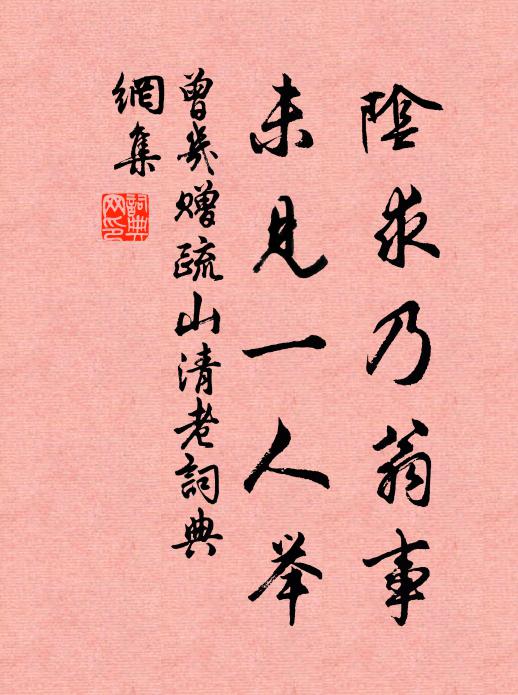 陰求乃翁事
未見一人举
曾幾贈疏山清老詞典
網集
詞典
网印